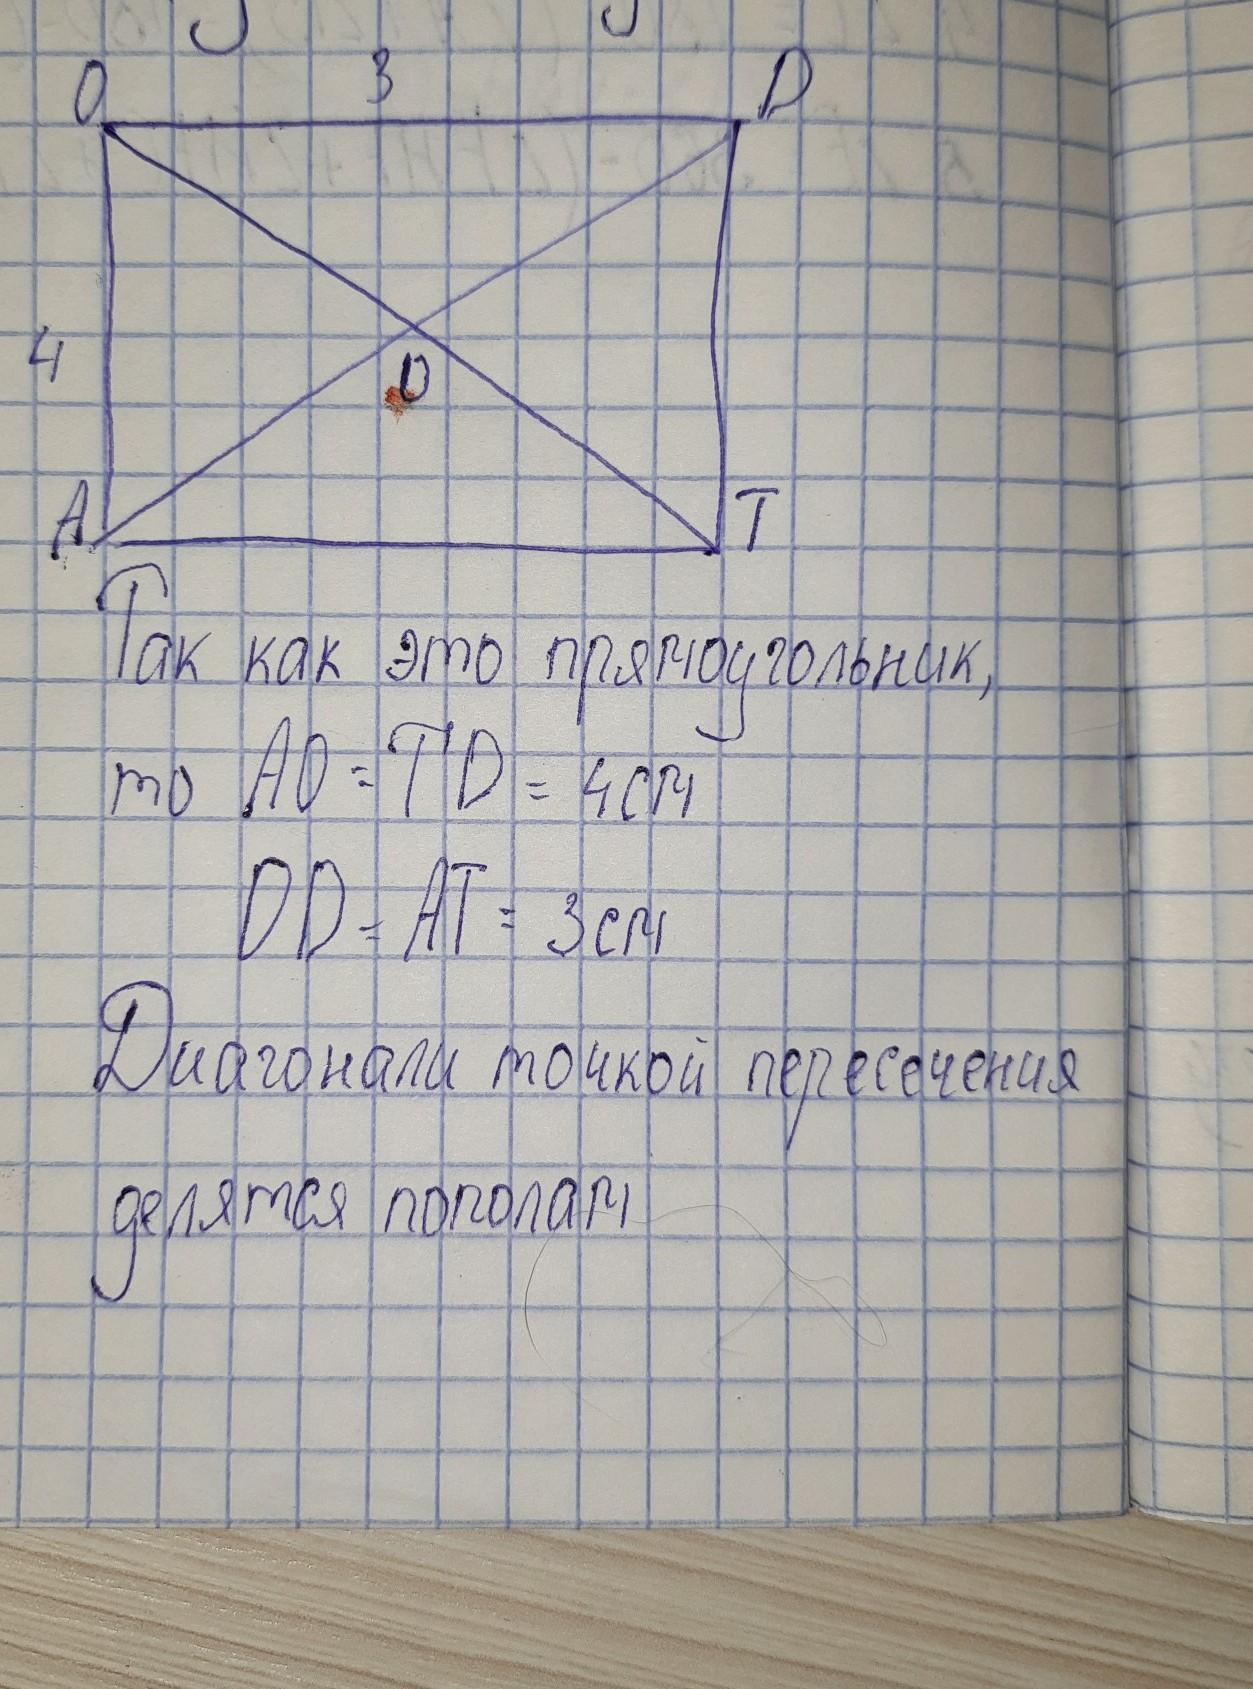 O 3 D
4
O
A T
Так как это прямоугольник,
то AO = TD = 4см
OD = AT = 3см
Диагонали точкой пересечения
делятся пополам